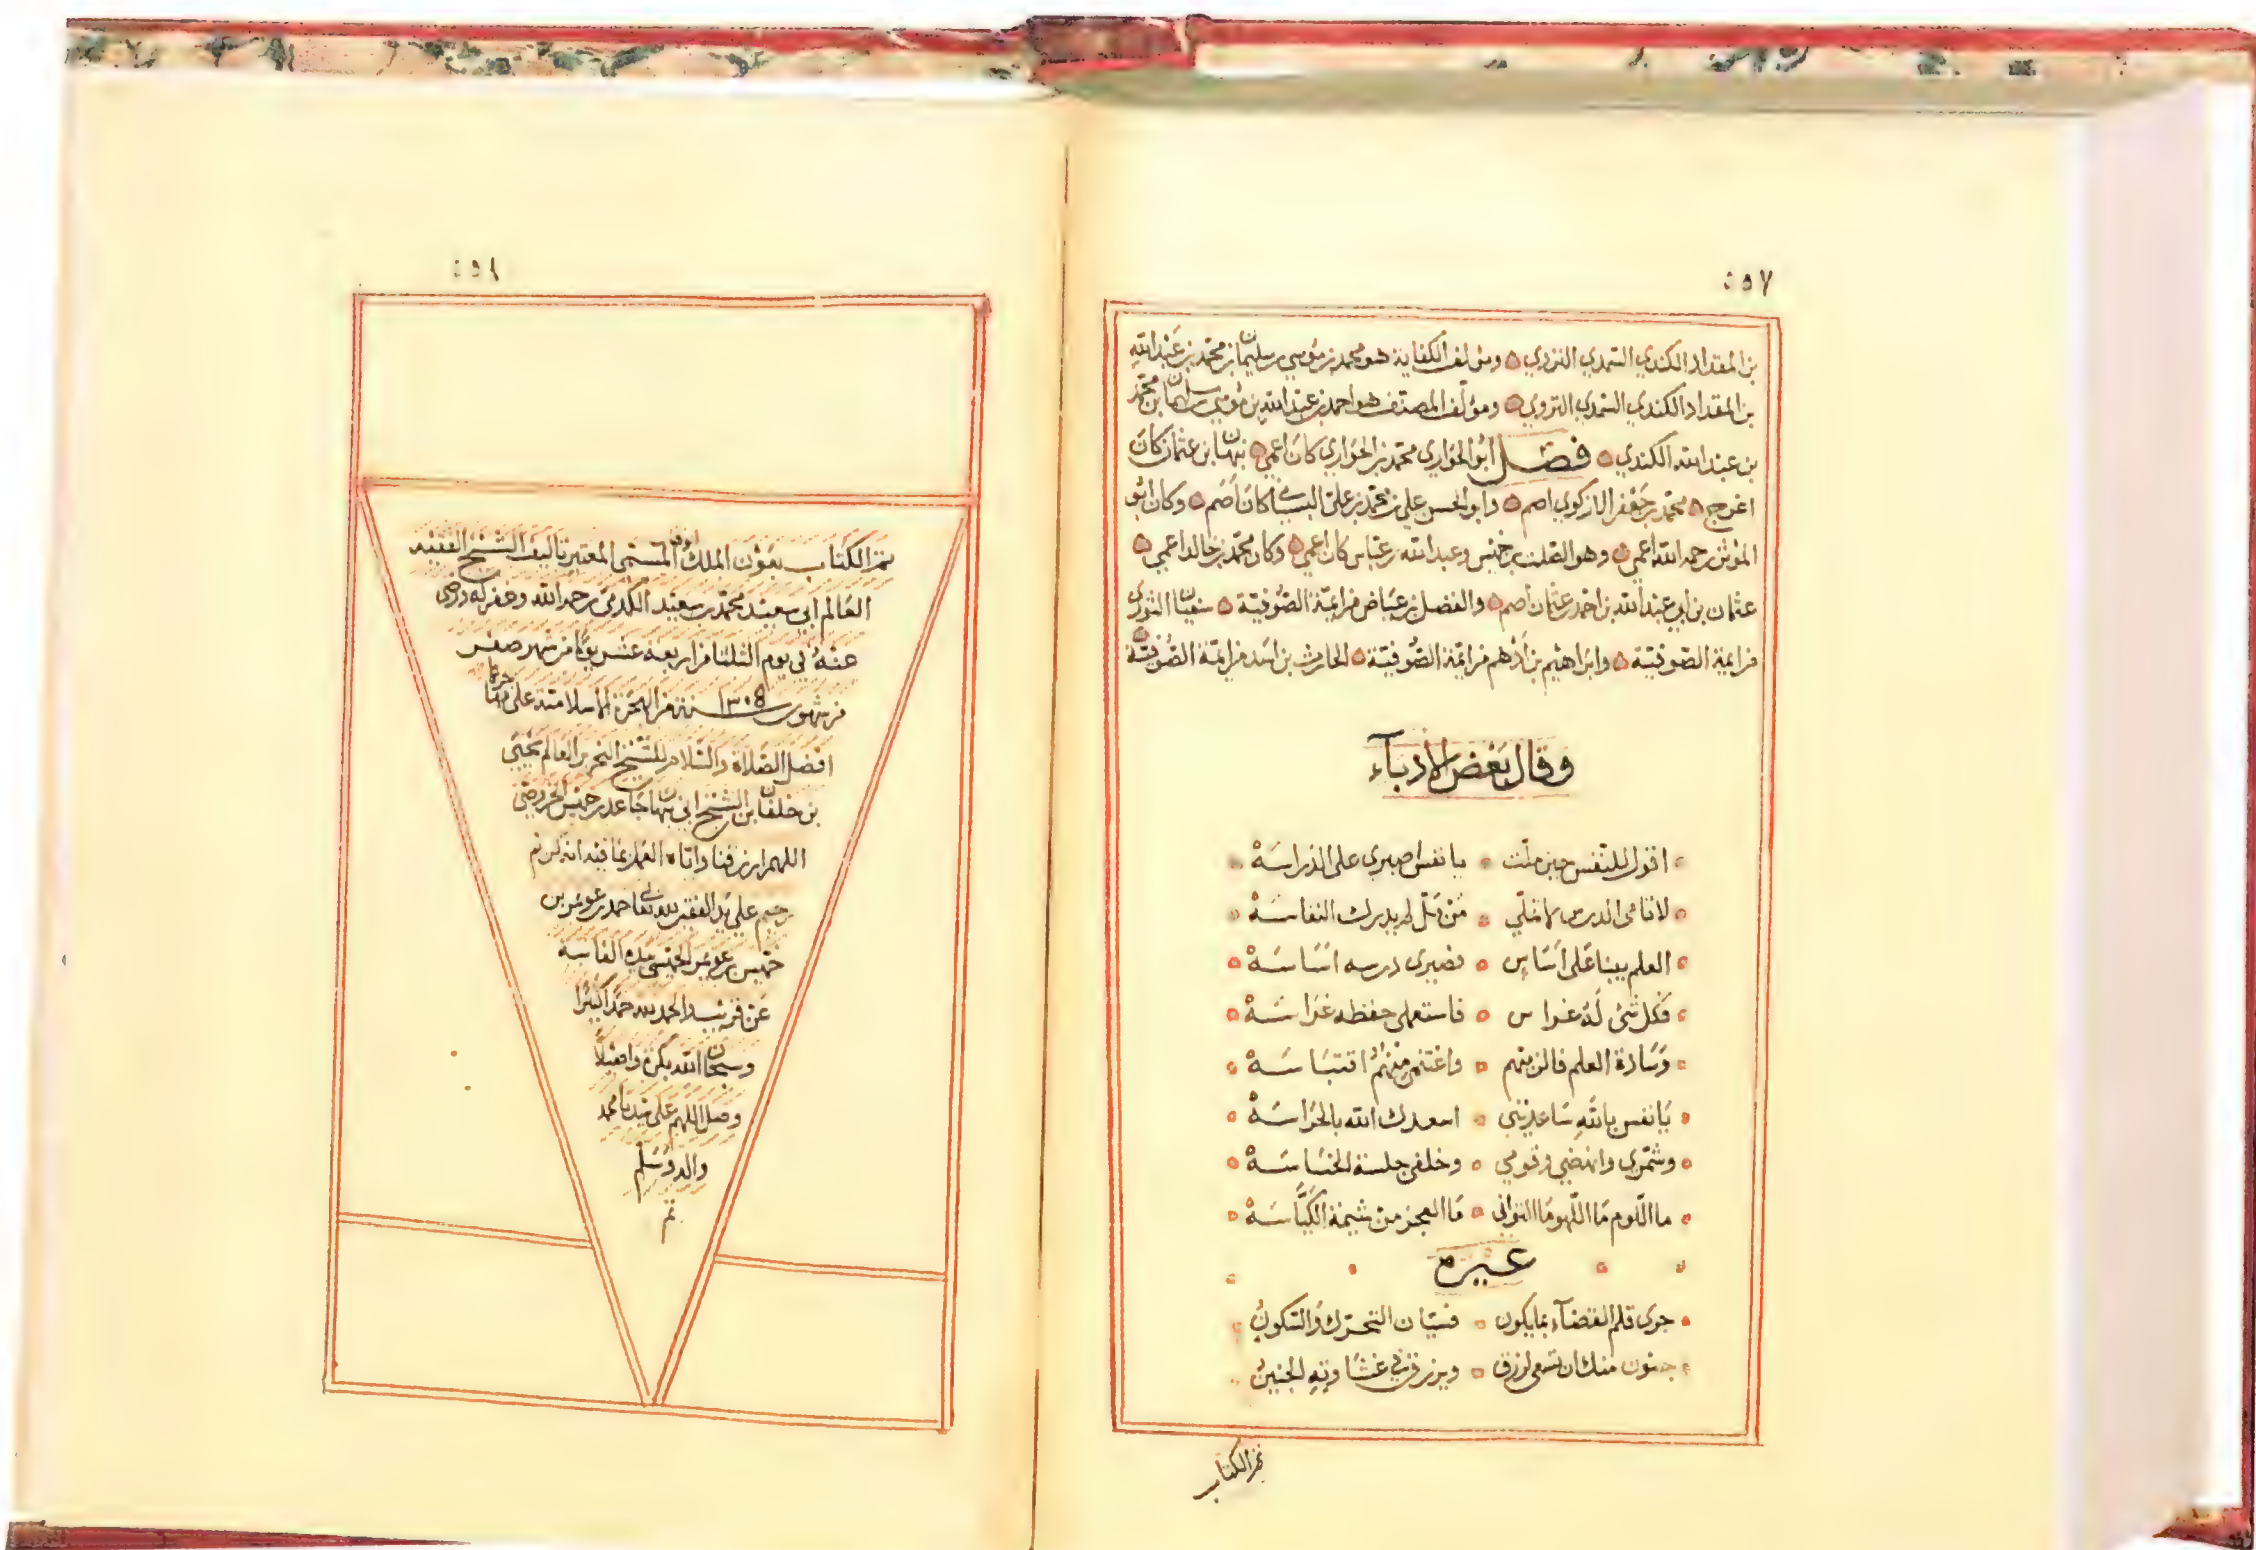 ٤٥٧
بن المقداد الكندي السمدي النزوي ومؤلف الكفاية هو محمد بن موسى بن سليمان بن محمد بن عبد الله
بن المقداد الكندي السمدي النزوي ومؤلف المصنف هو احمد بن عبد الله بن موسى بن سليمان بن محمد
بن عبد الله الكندي فصل ابو الحواري محمد بن الحواري كان اعمى نبهان بن عثمان كان
اعرج محمد بن جعفر الازكوي اصم وابو الحسن علي بن محمد بن علي البسياني كان اصم وكان ابو
المؤثر رحمه الله اعمى وهو الصلت بن خميس وعبد الله بن عباس كان اعمى وكان محمد بن خالد اعمى
عثمان بن ابي عبد الله بن احمد بن عثمان اصم والفضل بن عياض من ايمة الصوفية سفيان الثوري
من ايمة الصوفية وابراهيم بن ادهم من ايمة الصوفية الحارث بن اسد من ايمة الصوفية
وقال بعض الادبآء
اقول للنفس حين ملت يا نفس صبري على الدراسه
لا تنامى الدرس لا تملي من مل لم يدرك النفاسه
العلم يبنا على اساس فصيرى درسه اساسه
فكل شئ له غراس فاستعملى حفظه غراسه
وسادة العلم فالزميهم واغتنمي منهم اقتباسه
يا نفس بالله ساعديني اسعدك الله بالحراسه
وشمري وانهضي وقومي وخلفى جلسة الخساسه
ما اللوم ما اللهو ما التواني ما العجز من شيمة الكياسه
غيره
جرى قلم القضآء بما يكون فسيان التحرك والسكون
جنون منك ان تسعى لرزق ويرزق في غشاوته الجنين
تم الكتاب
٤٥٨
تم الكتاب بعون الملك الوهاب المسمى المعتبر تاليف الشيخ الفقيه
العالم ابي سعيد محمد بن سعيد الكدمي رحمه الله وغفر له ورضى
عنه في يوم الثلثا من اربعة عشر يوما من شهر صفر
من شهور سنة ١٣٠٥ من الهجرة الاسلامية على مهاجرها
افضل الصلاة والسلام للشيخ النحرير العالم يحيى
بن خلفان بن الشيخ ابي نبهان جاعد بن خميس الخروصي
اللهم ارزقنا واياه العمل بما فيه انه كريم
رحيم علي يد الفقير لله تعالى احمد بن عويمر بن
خميس بن عويمر الخميسي بيده الفانية
عن قريب والحمد لله حمدا كثيرا
وسبحان الله بكرة واصيلا
وصل اللهم على سيدنا محمد
واله وسلم
تم